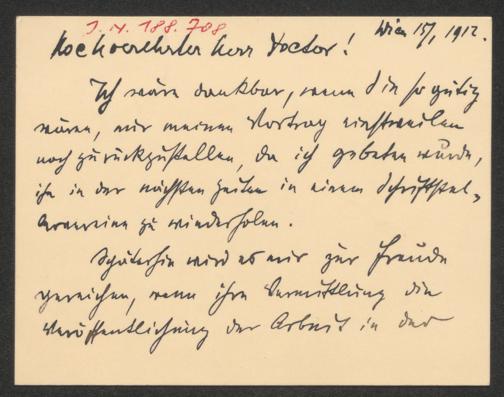 J. N. 188.708
Wien 15/, 1912.
Hochverehrter Herr Doctor!
Ich wäre dankbar, wenn Sie so gütig
wären, mir meinen Vortrag einstweilen
noch zurückzustellen, da ich gebeten wurde,
ihn in der nächsten Zeiten in einem Schriftstel-
lerverein zu wiederholen.
Späterhin wird es mir zur Freude
gereichen, wenn Ihre Vermittlung die
Veröffentlichung der Arbeit in der